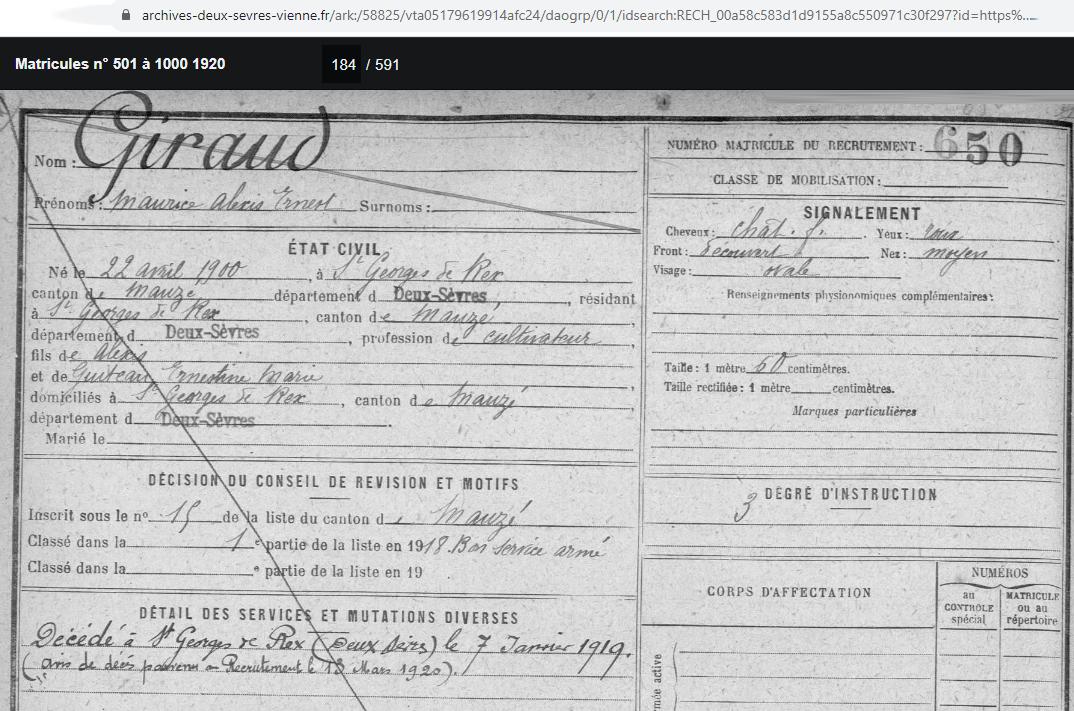 archives-deux-sevres-vienne.fr/ark:/58825/vta05179619914afc24/daogrp/0/1/idsearch:RECH_00a58c583d1d9155a8c550971c30f297?id=https%...
Matricules n° 501 à 1000 1920
184 / 591
Nom : Giraud
Prénoms : Maurice Alexis Ernest Surnoms :
ÉTAT CIVIL
Né le 22 avril 1900, à St Georges de Rex
canton de Mauzé département d Deux-Sèvres, résidant
à St Georges de Rex, canton de Mauzé,
département d Deux-Sèvres, profession de cultivateur,
fils de Alexis
et de Ernestine Marie,
domiciliés à St Georges de Rex, canton de Mauzé
département d Deux-Sèvres.
Marié le
DÉCISION DU CONSEIL DE REVISION ET MOTIFS
Inscrit sous le n° 15 de la liste du canton de Mauzé
Classé dans la 1e partie de la liste en 1918. Bon service armé
Classé dans la e partie de la liste en 19
DÉTAIL DES SERVICES ET MUTATIONS DIVERSES
Décédé à St Georges de Rex (Deux Sèvres) le 7 Janvier 1919.
(avis de décès parvenu au Recrutement le 18 Mars 1920).
NUMÉRO MATRICULE DU RECRUTEMENT : 650
CLASSE DE MOBILISATION :
SIGNALEMENT
Cheveux : chat. f. Yeux : roux
Front : découvert Nez : moyen
Visage : ovale
Renseignements physionomiques complémentaires :
Taille : 1 mètre 60 centimètres.
Taille rectifiée : 1 mètre centimètres.
Marques particulières
DEGRÉ D'INSTRUCTION
3
CORPS D'AFFECTATION
NUMÉROS
au CONTRÔLE spécial
MATRICULE ou au répertoire
mée active